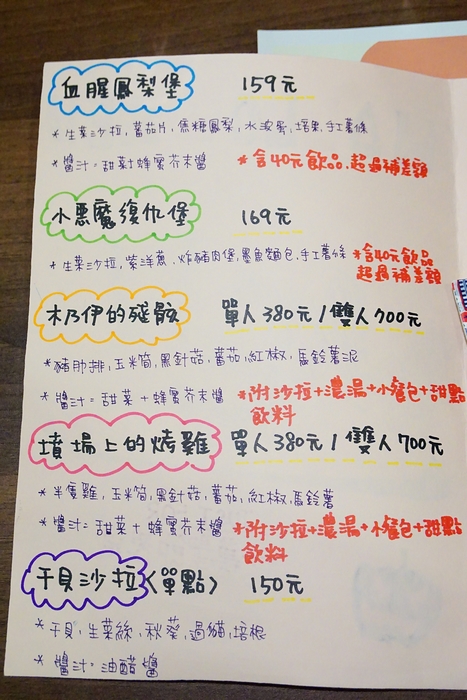 血腥鳳梨堡 159元
*生菜沙拉,蕃茄片,焦糖鳳梨,水波蛋,培果,手工薯條
*醬汁=甜菜+蜂蜜芥末醬 *含40元飲品,超過補差額
小惡魔復仇堡 169元
*生菜沙拉,紫洋蔥,炸豬肉堡,墨魚麵包,手工薯條 *含40元飲品
超過補差額
木乃伊的殘骸 單人380元/雙人700元
*豬肋排,玉米筒,黑針菇,蕃茄,紅椒,馬鈴薯泥
*醬汁=甜菜+蜂蜜芥末醬 *附沙拉+濃湯+小餐包+甜點
飲料
墳場上的烤雞 單人380元/雙人700元
*半隻雞,玉米筒,黑針菇,蕃茄,紅椒,馬鈴薯
*醬汁=甜菜+蜂蜜芥末醬 *附沙拉+濃湯+小餐包+甜點
飲料
干貝沙拉〈單點〉 150元
*干貝,生菜絲,秋葵,過貓,培根
*醬汁=油醋醬